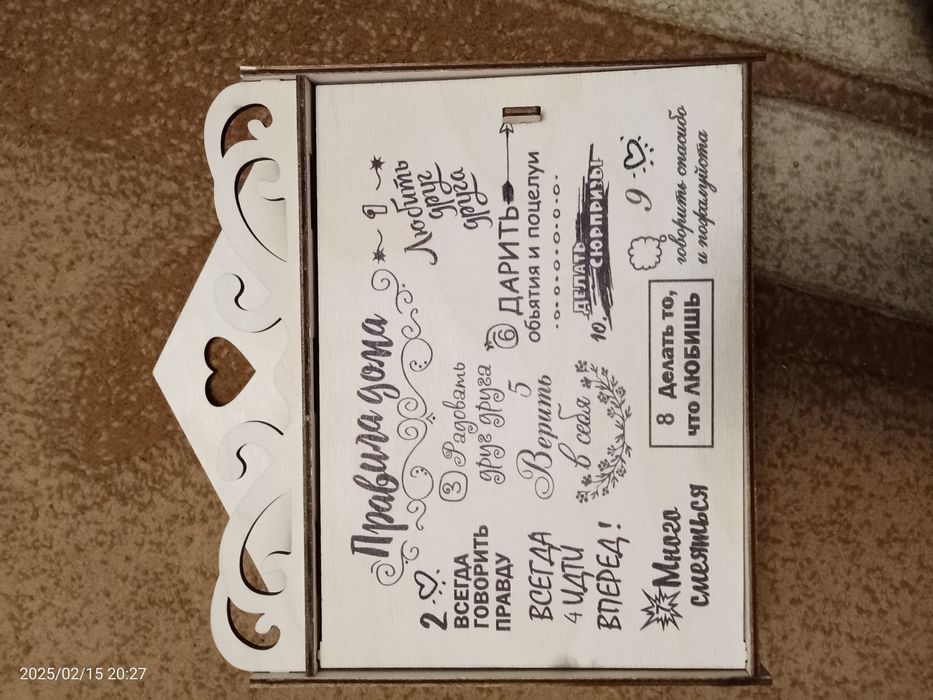 Правила дома
1
Любить
друг
друга
2
ВСЕГДА
ГОВОРИТЬ
ПРАВДУ
3 Радовать
друг друга
6 ДАРИТЬ
объятия и поцелуи
ВСЕГДА
4 ИДТИ
ВПЕРЕД!
5
Верить
в себя
10. ДЕЛАТЬ
СЮРПРИЗЫ
Много
смеяться
8 Делать то,
что ЛЮБИШЬ
9
говорить спасибо
и пожалуйста
2025/02/15 20:27